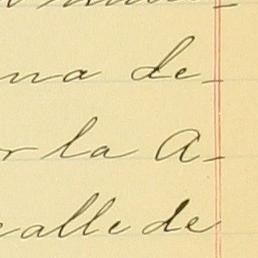 na de-
r la A-
calle de